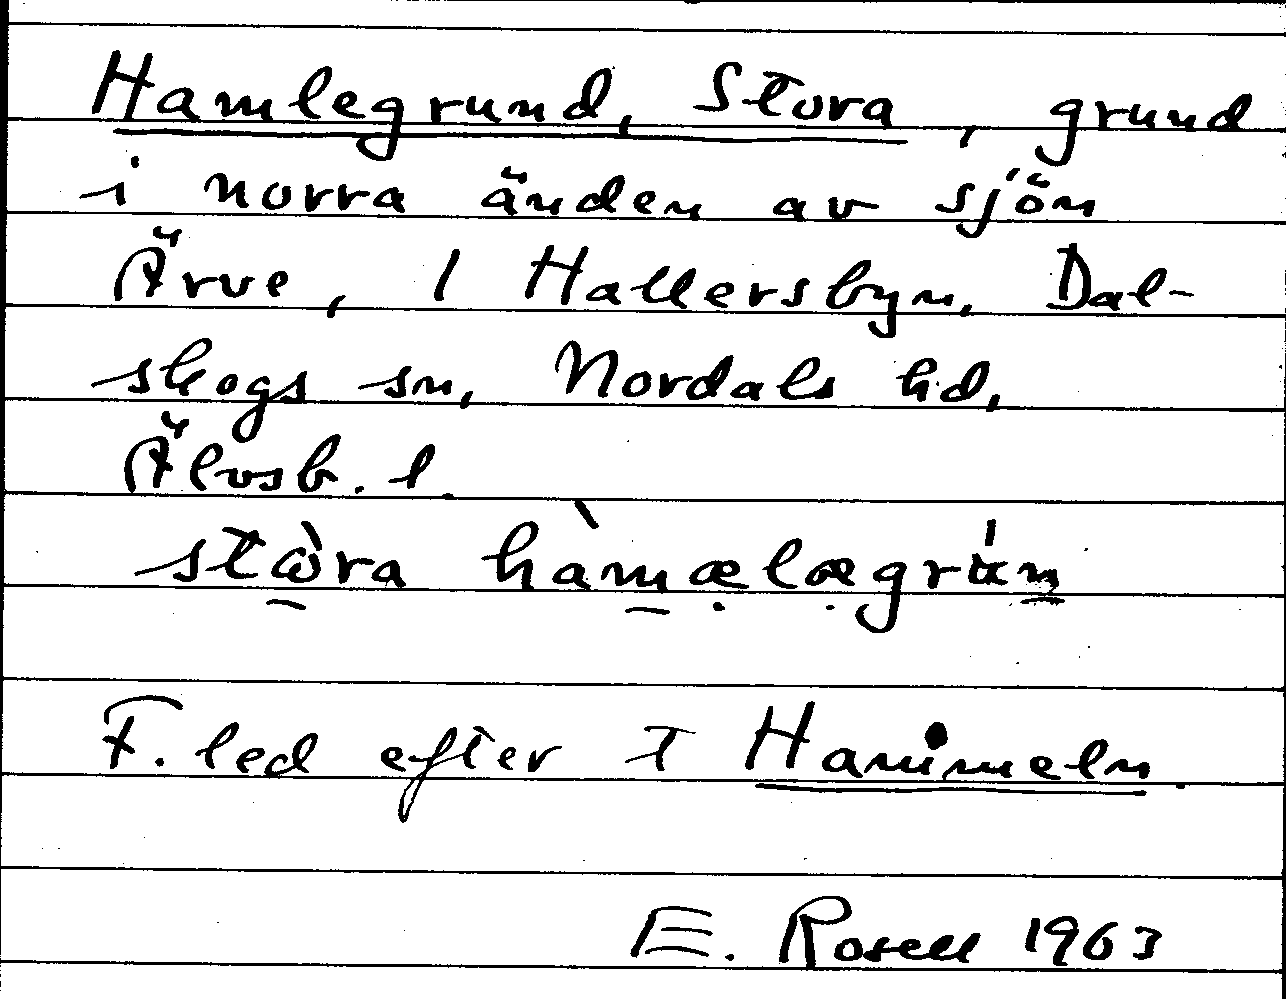 Hamlegrund, Stora, grund
i norra änden av sjön
Ärve, 1 Hallersbyn, Dal-
skogs sn, Nordals hd,
Älvsb. l.
F. led efter T Hammeln.
E. Rosell 1963